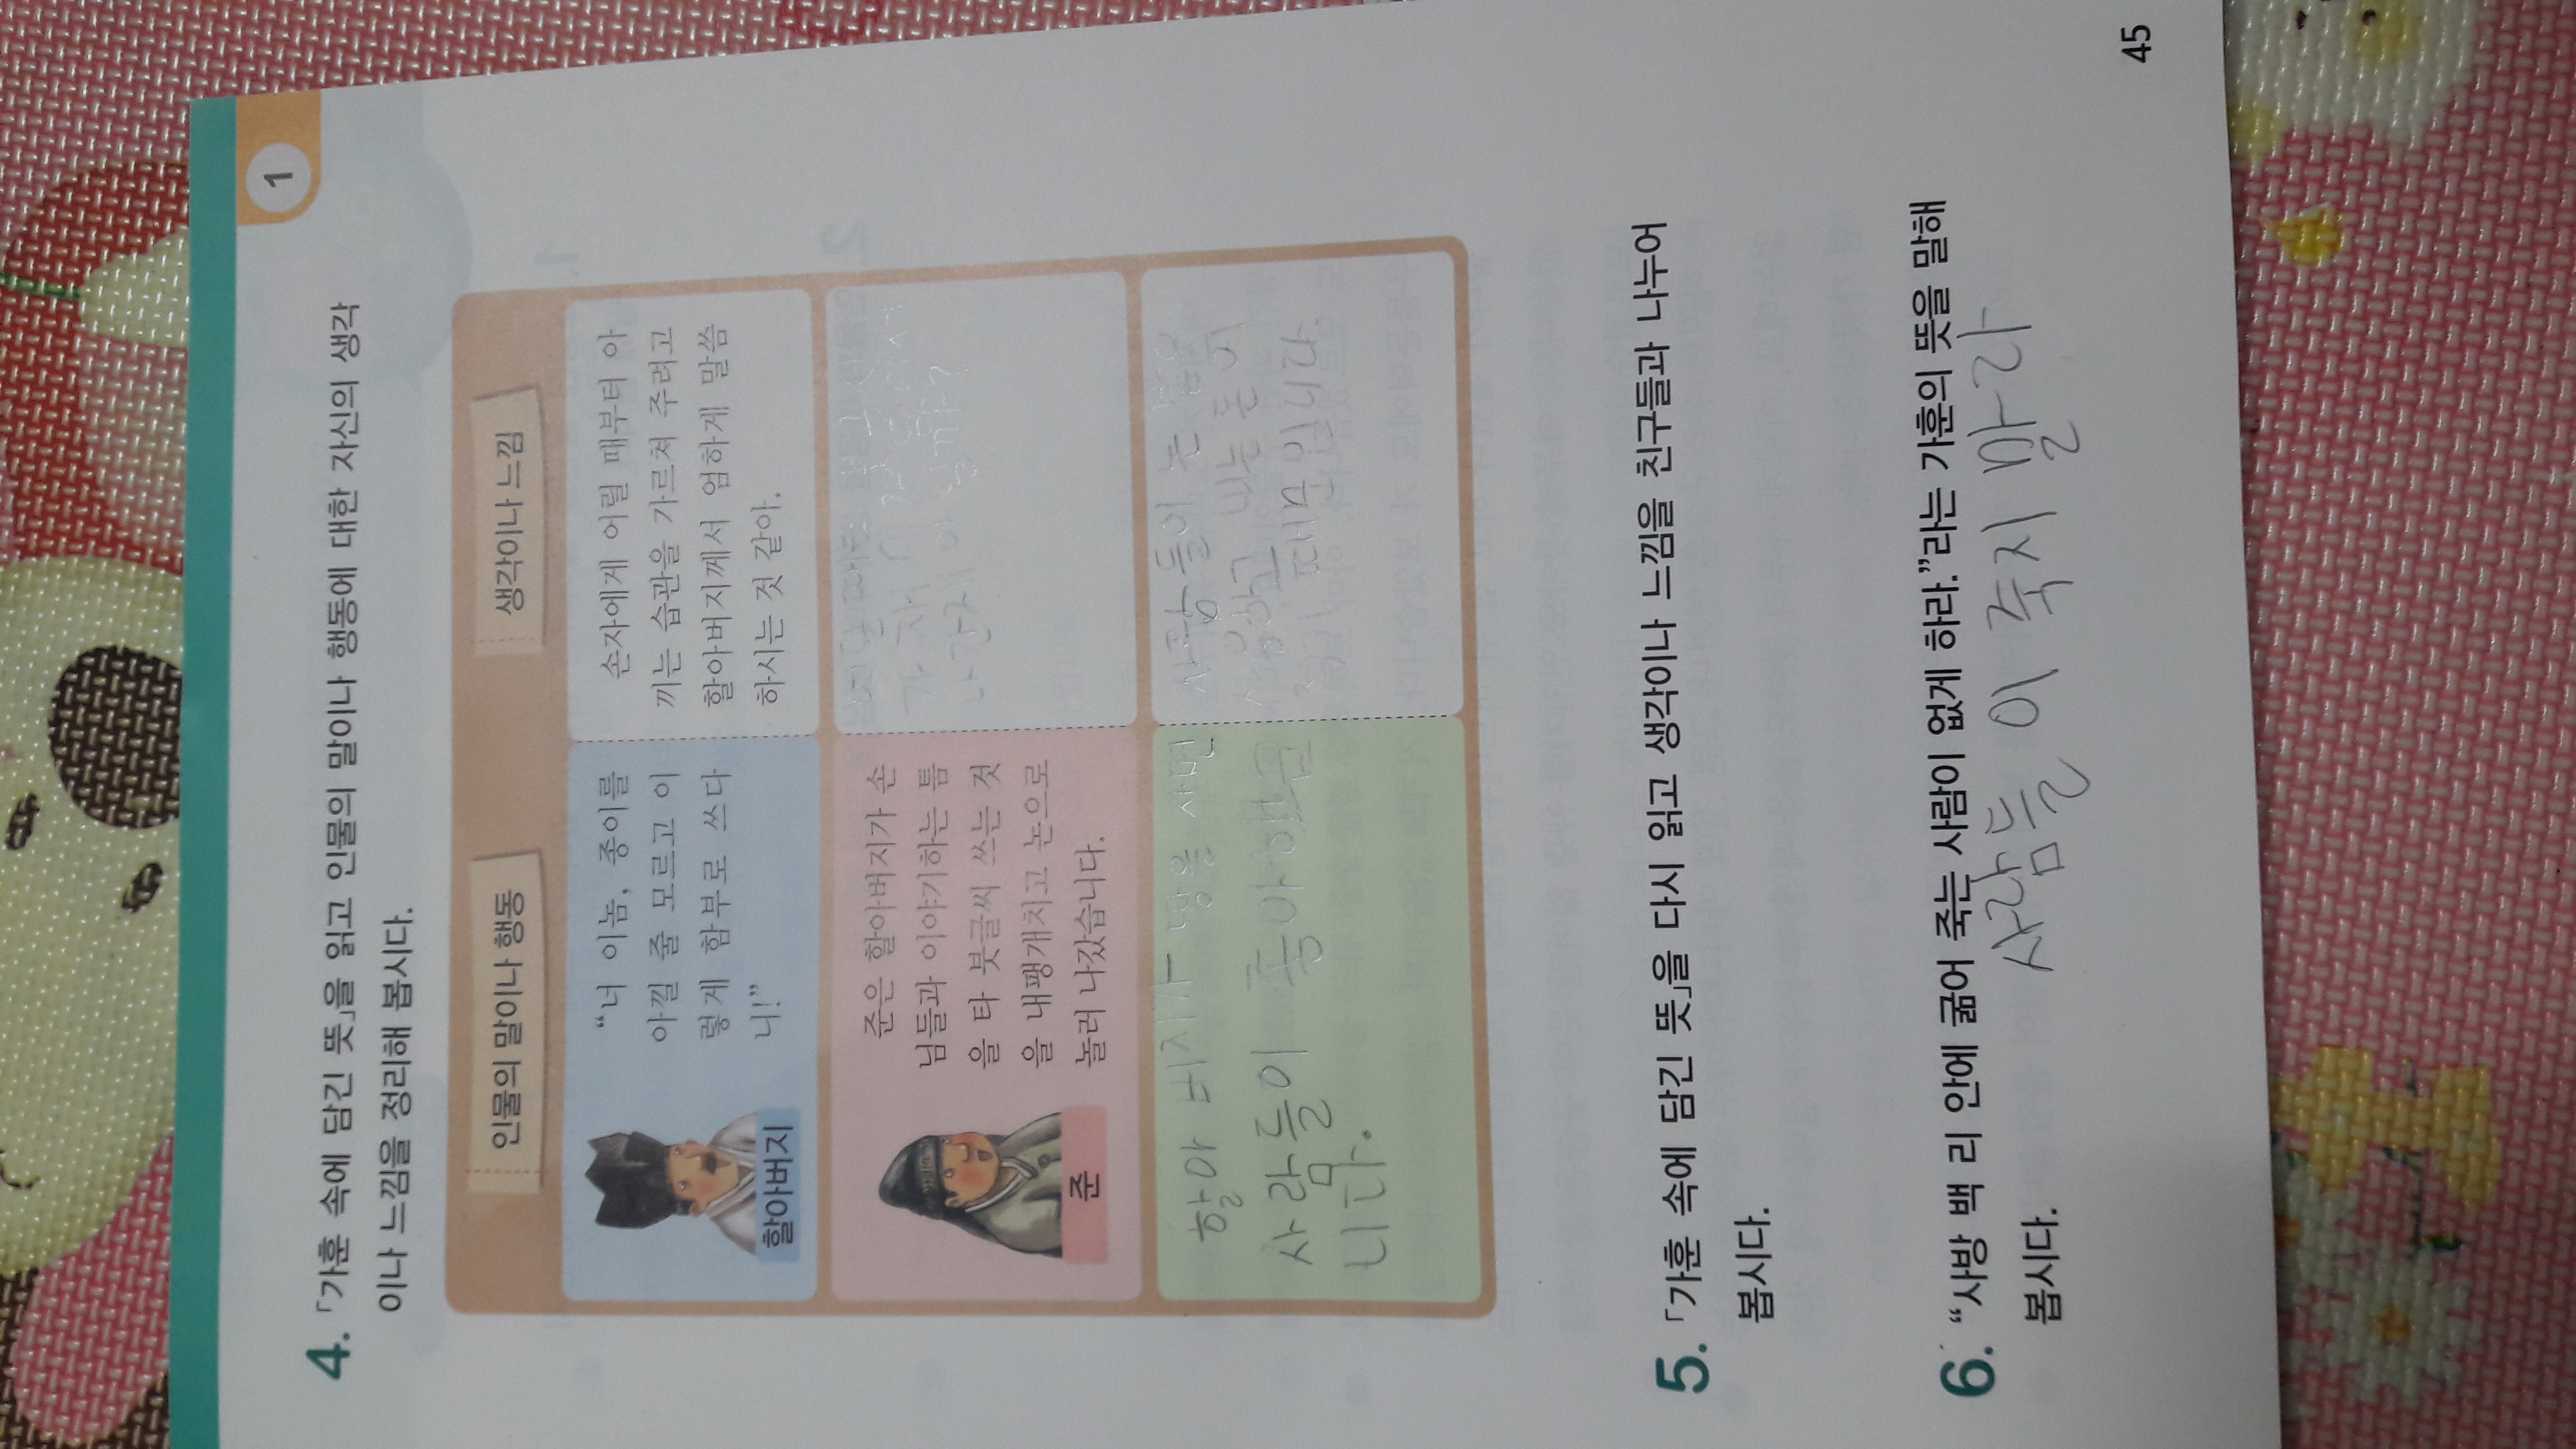 1
4. 「가훈 속에 담긴 뜻」을 읽고 인물의 말이나 행동에 대한 자신의 생각
이나 느낌을 정리해 봅시다.
인물의 말이나 행동
생각이나 느낌
할아버지
“너 이놈, 종이를
아낄 줄 모르고 이
렇게 함부로 쓰다
니!”
손자에게 어릴 때부터 아
끼는 습관을 가르쳐 주려고
할아버지께서 엄하게 말씀
하시는 것 같아.
준
준은 할아버지가 손
님들과 이야기하는 틈
을 타 붓글씨 쓰는 것
을 내팽개치고 논으로
놀러 나갔습니다.
할아버지가 땅을 사면
사람들이 좋아했습
니다.
사람들이 논
내는 돈이
때문입니다.
5. 「가훈 속에 담긴 뜻」을 다시 읽고 생각이나 느낌을 친구들과 나누어
봅시다.
6. “사방 백 리 안에 굶어 죽는 사람이 없게 하라.”라는 가훈의 뜻을 말해
봅시다.
사람들이 죽지 말라
45